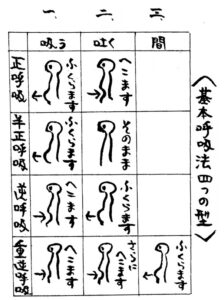 〈基本呼吸法四つの型〉
一、 二、 三、
吸う 吐く 間
正呼吸 ふくらます へこます
半正呼吸 ふくらます そのまま
逆呼吸 へこます ふくらます
重逆呼吸 へこます さらにへこます ふくらます